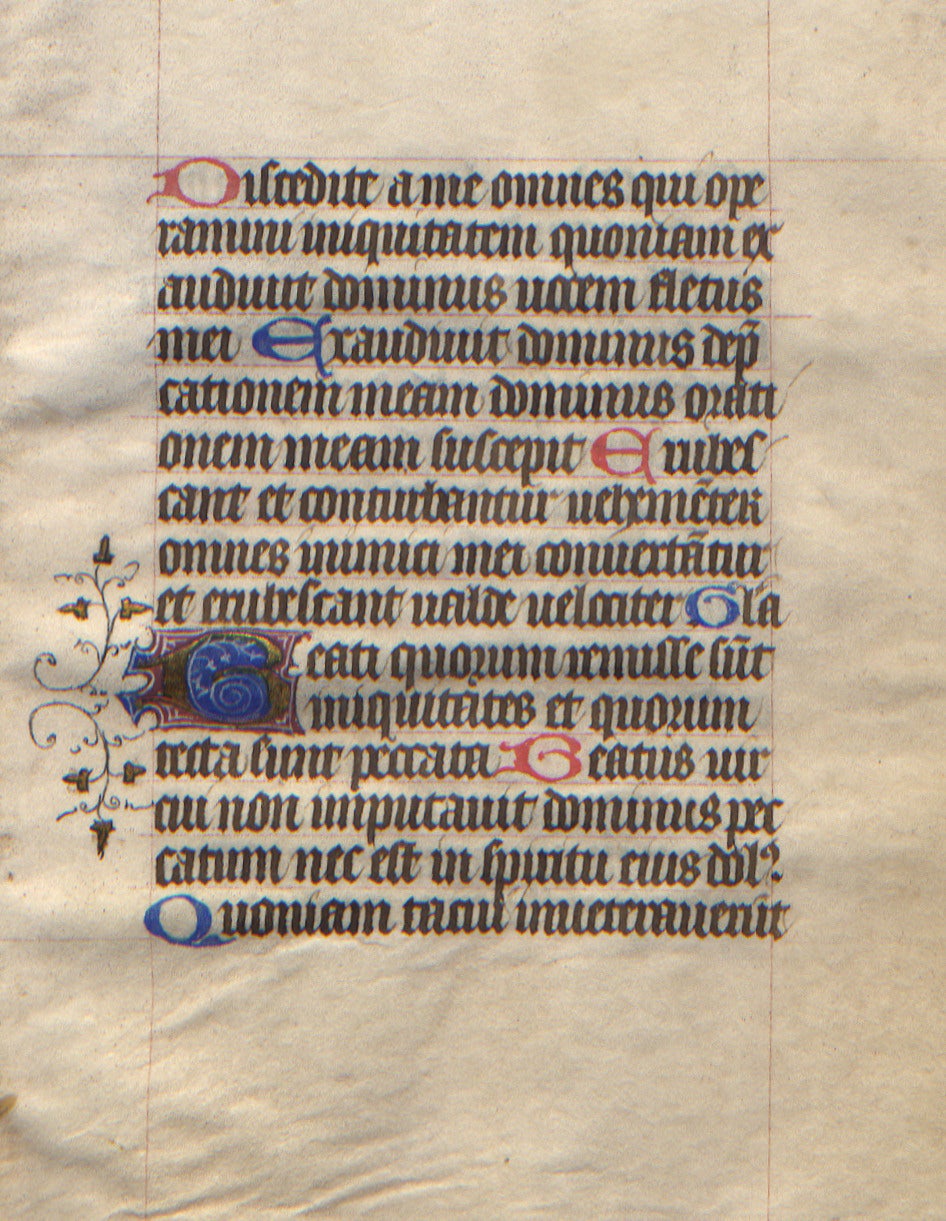 Discedite a me omnes qui ope
ramini iniquitatem quoniam ex
audiuit dominus uocem fletus
mei Exaudiuit dominus dep̄
cationem meam dominus orati
onem meam suscepit Erubes
cant et conturbantur uehemēter
omnes inimici mei conuertātur
et erubescant ualde uelociter Gła
Beati quorum remisse sūt
iniquitates et quorum
tecta sunt peccata Beatus uir
cui non imputauit dominus pec
catum nec est in spiritu eius dolꝰ
Quoniam tacui inueterauerūt